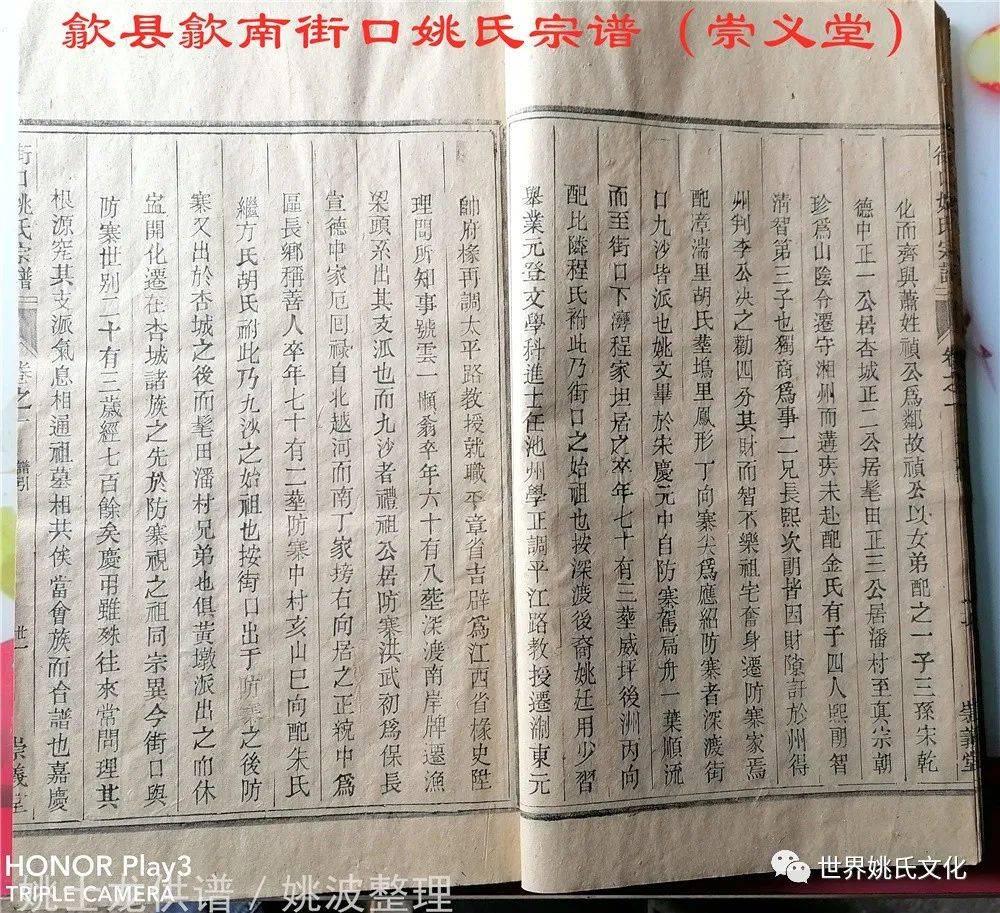 歙县歙南街口姚氏宗谱（崇义堂）
化而齊與蕭姓禎公爲鄰故禎公以女弟配之一子三孫宋乾
德中正一公居杏城正二公居髦田正三公居潘村至真宗朝
珍爲山陰令遷守湘州而遘疾未赴配金氏有子四人熙朗智
清智第三子也獨商爲事二兄長熙次朗皆因財隙訐於州得
州判李公決之勸四分其財而智不樂祖宅奮身遷防寨家焉
配漳湍里胡氏塟塢里鳳形丁向寨尖爲應紹防寨者深渡街
口九沙皆派也姚文畢於宋慶元中自防寨駕扁舟一葉順流
而至街口下㵎程家坦居之卒年七十有三塟威坪後洲丙向
配比隣程氏祔此乃街口之始祖也按深渡後裔姚廷用少習
舉業元登文學科進士任池州學正調平江路教授遷淛東元
帥府椽再調太平路教授就職平章省吉辟爲江西省椽史陞
理問所知事號雲一嬾翁卒年六十有八塟深渡南岸牌遷漁
梁頭系出其支派也而九沙者禮祖公居防寨洪武初爲保長
宣德中家厄回禄自北越河而南丁家塝右向居之正統中爲
區長鄉稱善人卒年七十有二塟防寨中村亥山巳向配朱氏
繼方氏胡氏祔此乃九沙之始祖也按街口出于防寨之後防
寨又出於杏城之後而髦田潘村兄弟也俱黃墩派出之的休
盆開化遷在杏城諸族之先於防寨視之祖同宗異今街口與
防寨世别二十有三歲經七百餘矣慶弔雖殊往來常問理其
根源究其支派氣息相通祖墓相共俟當會族而合譜也嘉慶
街口姚氏宗譜
卷之一
譜引
世一
崇義堂
街口姚氏宗譜
卷之一
崇義堂
HONOR Play3
TRIPLE CAMERA
姚士龙供谱 / 姚波整理
世界姚氏文化